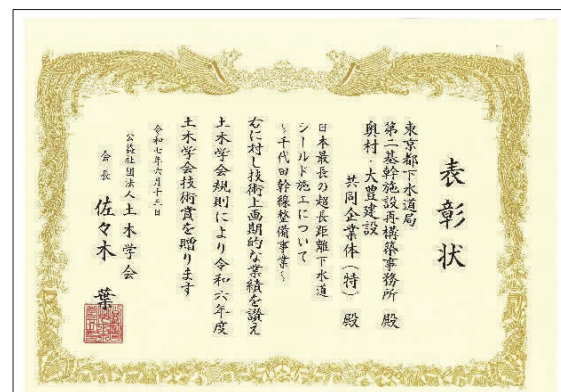 表彰状
東京都下水道局
第二基幹施設再構築事務所 殿
奥村・大豊建設
共同企業体(特) 殿
日本最長の超長距離下水道
シールド施工について
~千代田幹線整備事業~
右に対し技術上画期的な業績を讃え
土木学会規則により令和六年度
土木学会技術賞を贈ります
令和七年六月十三日
公益社団法人 土木学会
会長 佐々木 葉